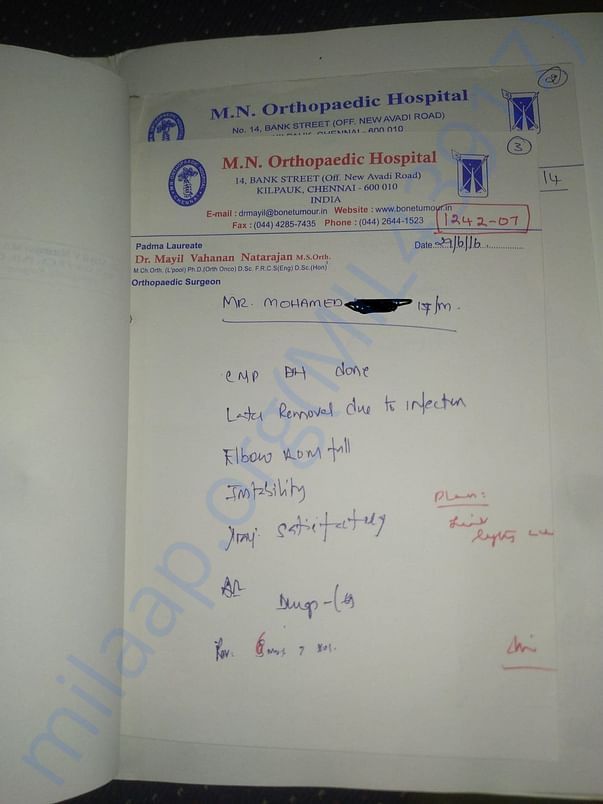 2
M.N. Orthopaedic Hospital
No. 14, BANK STREET (OFF. NEW AVADI ROAD)
KILPAUK, CHENNAI - 600 010
3
M.N. Orthopaedic Hospital
14, BANK STREET (Off. New Avadi Road)
KILPAUK, CHENNAI - 600 010
INDIA
E-mail : drmayil@bonetumour.in Website : www.bonetumour.in
Fax : (044) 4285-7435 Phone : (044) 2644-1523
1242-07
14
Padma Laureate
Date.
Dr. Mayil Vahanan Natarajan M.S.Orth.
M.Ch.Orth. (L'pool) Ph.D.(Orth Onco) D.Sc. F.R.C.S(Eng) D.Sc.(Hon)
Orthopaedic Surgeon
MR. MOHAMED
CMP DH done
Later Removal due to infection
Elbow ROM full
Instability
Xray: Satisfactory
Plan:
Rev:
milaap.org(MIL43917)